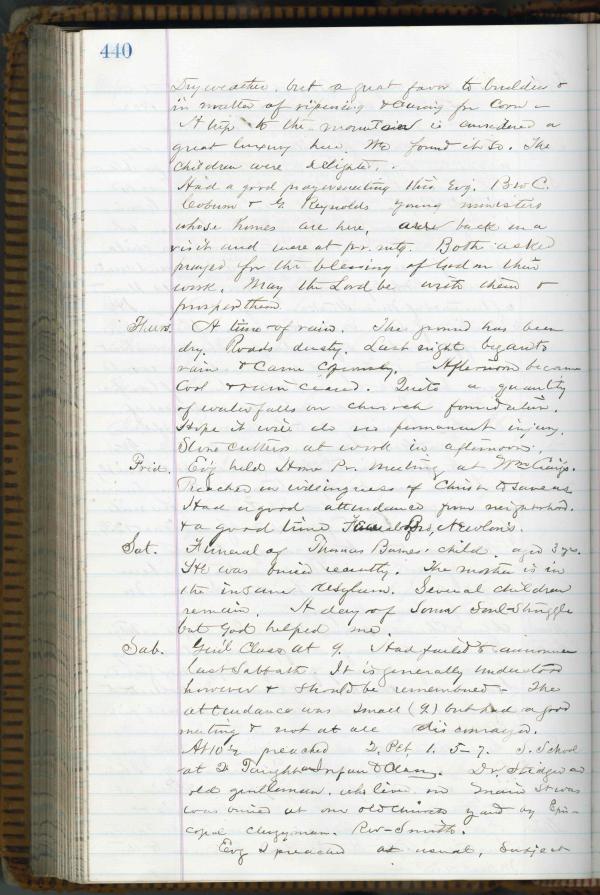 440
Dry weather, but a great favor to builders &
in matter of ripening & curing for Corn -
A trip to the mountain is considered a
great luxury here. We found it so. The
children were delighted.
Had a good prayermeeting this Evg. Bro C.
Coburn & G. Reynolds young ministers
whose homes are here, are back on a
visit and were at pr. mtg. Both asked
prayed for the blessing of God on their
work. May the Lord be with them &
prosper them.
Thurs. A time of rain. The ground has been
dry. Roads dusty. Last night began to
rain & came Afternoon became
cool & rain ceased. Quite a quantity
of water falls on church foundation.
Hope it will do no permanent injury.
Stone cutters at work in afternoon.
Frid. Evg held Home Pr. Meeting at Wm Craigs.
Preached on willingness of Christ to save us
Had a good attendance from neighborhood.
& a good time Newlons.
Sat. Funeral of Thomas Barnes' child, aged 3 yrs.
He was buried recently. The mother is in
the insane Asylum. Several children
remain. A day of Some Soul-Struggle
but God helped me.
Sab. Girls Class at 9. Had failed to announce
last Sabbath. It is generally understood
however & should be remembered - The
attendance was small (9) but had a good
meeting & not at all discouraged.
At 10 1/2 preached 2. Pet. 1. 5-7. S. School
at 2 Taught Infant Class. Dr. an
old gentleman who lives on Main St was
was buried at our old church yard by Epis-
copal clergyman. Rev-Smith.
Evg I preached as usual, Subject